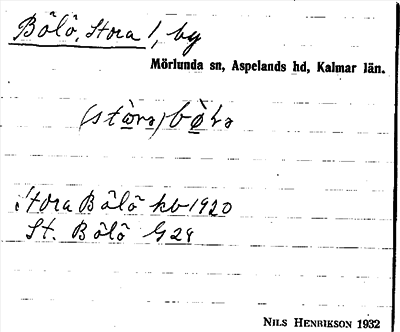 Bölö, Stora 1, by
Mörlunda sn, Aspelands hd, Kalmar län.
Stora Bölö kb 1920
St. Bölö G 28
NILS HENRIKSON 1932